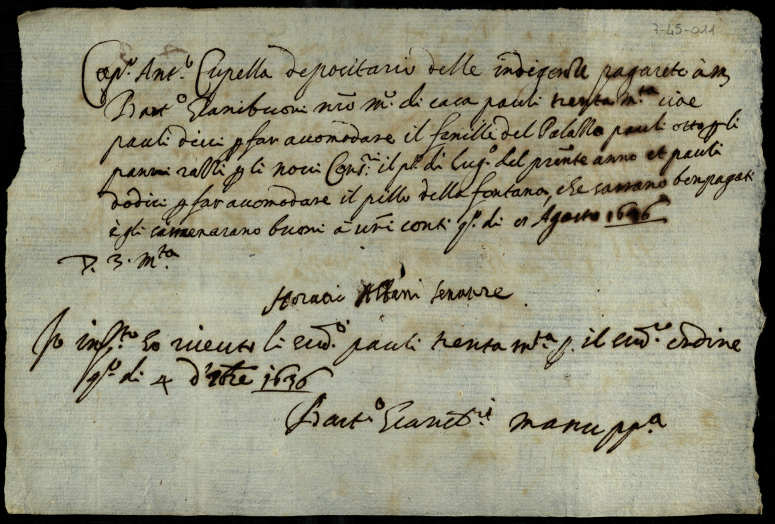 7-45-011
Capo. Ant.o Cupella depositario delle pagarete à m
Bart.o Gianibuoni nro mo. di casa pauli trenta m.ta cioe
pauli dieci p far accomodare il fenille del Palazzo pauli otto p li
panni p li novi Cons.ri il po. di lug.o del pnte anno et pauli
dodici p far accomodare il pillo della fontana, che saranno ben pagati
e gli buoni a suoi conti qo. di Agosto 1636
D. 3. m.ta
Horatio Albani senatore
Io ho ricevuto li sud.i pauli trenta m.ta p. il sud.o ordine
qo. di 4 d'8bre 1636
Bart.o manu pp.a